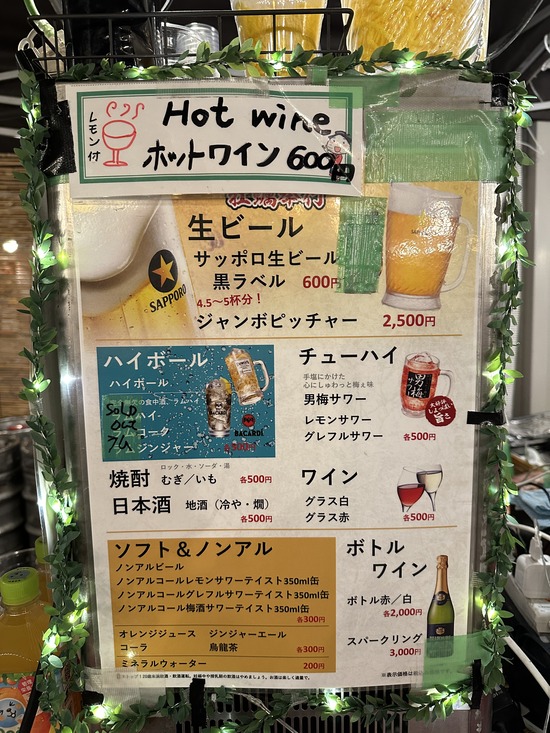 レモン付
Hot wine
ホットワイン 600円
生ビール
サッポロ生ビール
黒ラベル 600円
4.5〜5杯分！
ジャンボピッチャー 2,500円
SAPPORO
ハイボール
ハイボール
SOLD
OUT
ハイ
コーラ
ジンジャー
BACARDI
チューハイ
手塩にかけた
心にしゅわっと梅ぇ味
男梅サワー
レモンサワー
グレフルサワー 各500円
男梅
旨さ
焼酎 ロック・水・ソーダ・湯
むぎ／いも 各500円
日本酒 地酒（冷や・燗）
各500円
ワイン
グラス白
グラス赤 各500円
ソフト＆ノンアル
ノンアルビール
ノンアルコールレモンサワーテイスト350ml缶
ノンアルコールグレフルサワーテイスト350ml缶
ノンアルコール梅酒サワーテイスト350ml缶
各300円
オレンジジュース ジンジャーエール
コーラ 烏龍茶 各300円
ミネラルウォーター 200円
ボトル
ワイン
ボトル赤／白
各2,000円
スパークリング
3,000円
※表示価格は